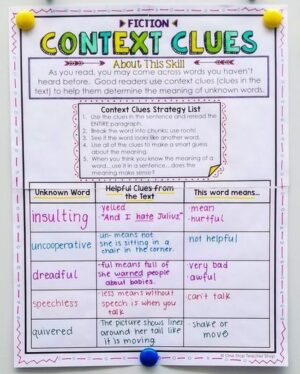 FICTION
CONTEXT CLUES
About This Skill
As you read, you may come across words you haven't
heard before. Good readers use context clues (clues in the
text) to help them determine the meaning of unknown words.
Context Clues Strategy List
1. Use the clues in the sentence and reread the
ENTIRE paragraph.
2. Break the word into chunks: use roots!
3. See if the word looks like another word.
4. Use all of the clues to make a smart guess
about the meaning.
5. When you think you know the meaning of a
word...use it in a sentence...does the
meaning make sense?
Unknown Word
Helpful Clues from
the Text
This word means...
insulting
yelled
"And I hate Julius"
·mean
·hurtful
uncooperative
un- means not
she is sitting in a
chair in the corner.
not helpful
dreadful
-ful means full of
she warned people
about babies.
·very bad
·awful
speechless
-less means without
speech is when you
talk
·can't talk
quivered
The picture shows lines
around her tail like
it is moving.
·shake or
move
© One Stop Teacher Shop